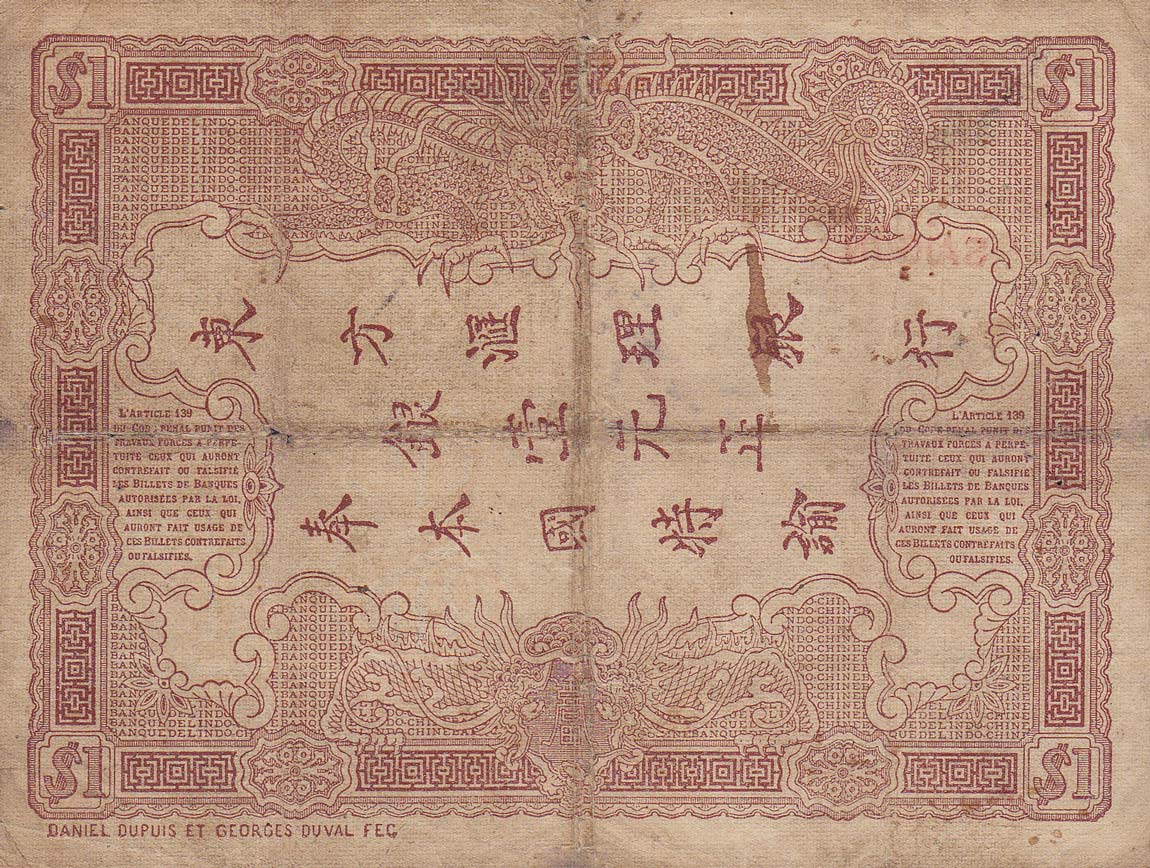 $1
$1
BANQUE DE L'INDO-CHINE
東方滙理銀行
銀壹元正
奉本國特諭
L'ARTICLE 139
DU CODE PENAL PUNIT DES
TRAVAUX FORCES A PERPE-
TUITE CEUX QUI AURONT
CONTREFAIT OU FALSIFIÉ
LES BILLETS DE BANQUES
AUTORISÉES PAR LA LOI,
AINSI QUE CEUX QUI
AURONT FAIT USAGE DE
CES BILLETS CONTREFAITS
OU FALSIFIES.
L'ARTICLE 139
DU CODE PENAL PUNIT DES
TRAVAUX FORCES A PERPE-
TUITE CEUX QUI AURONT
CONTREFAIT OU FALSIFIÉ
LES BILLETS DE BANQUES
AUTORISÉES PAR LA LOI,
AINSI QUE CEUX QUI
AURONT FAIT USAGE DE
CES BILLETS CONTREFAITS
OU FALSIFIES.
$1
$1
DANIEL DUPUIS ET GEORGES DUVAL FEC